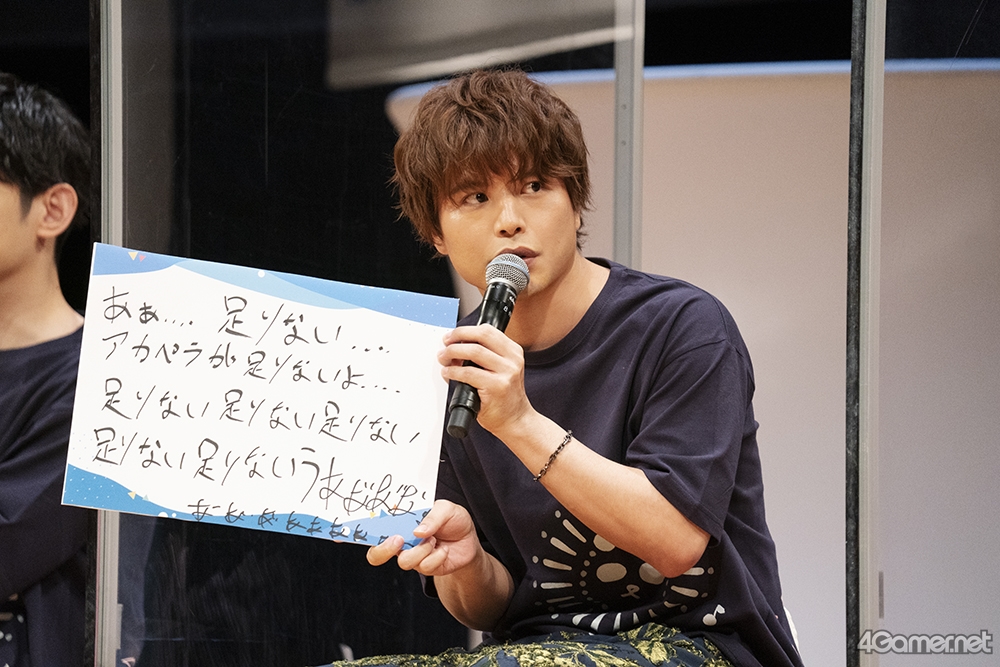 あぁ.... 足りない....
アカペラが足りないよ....
足りない足りない足りない
足りない足りないうあ
4Gamer.net